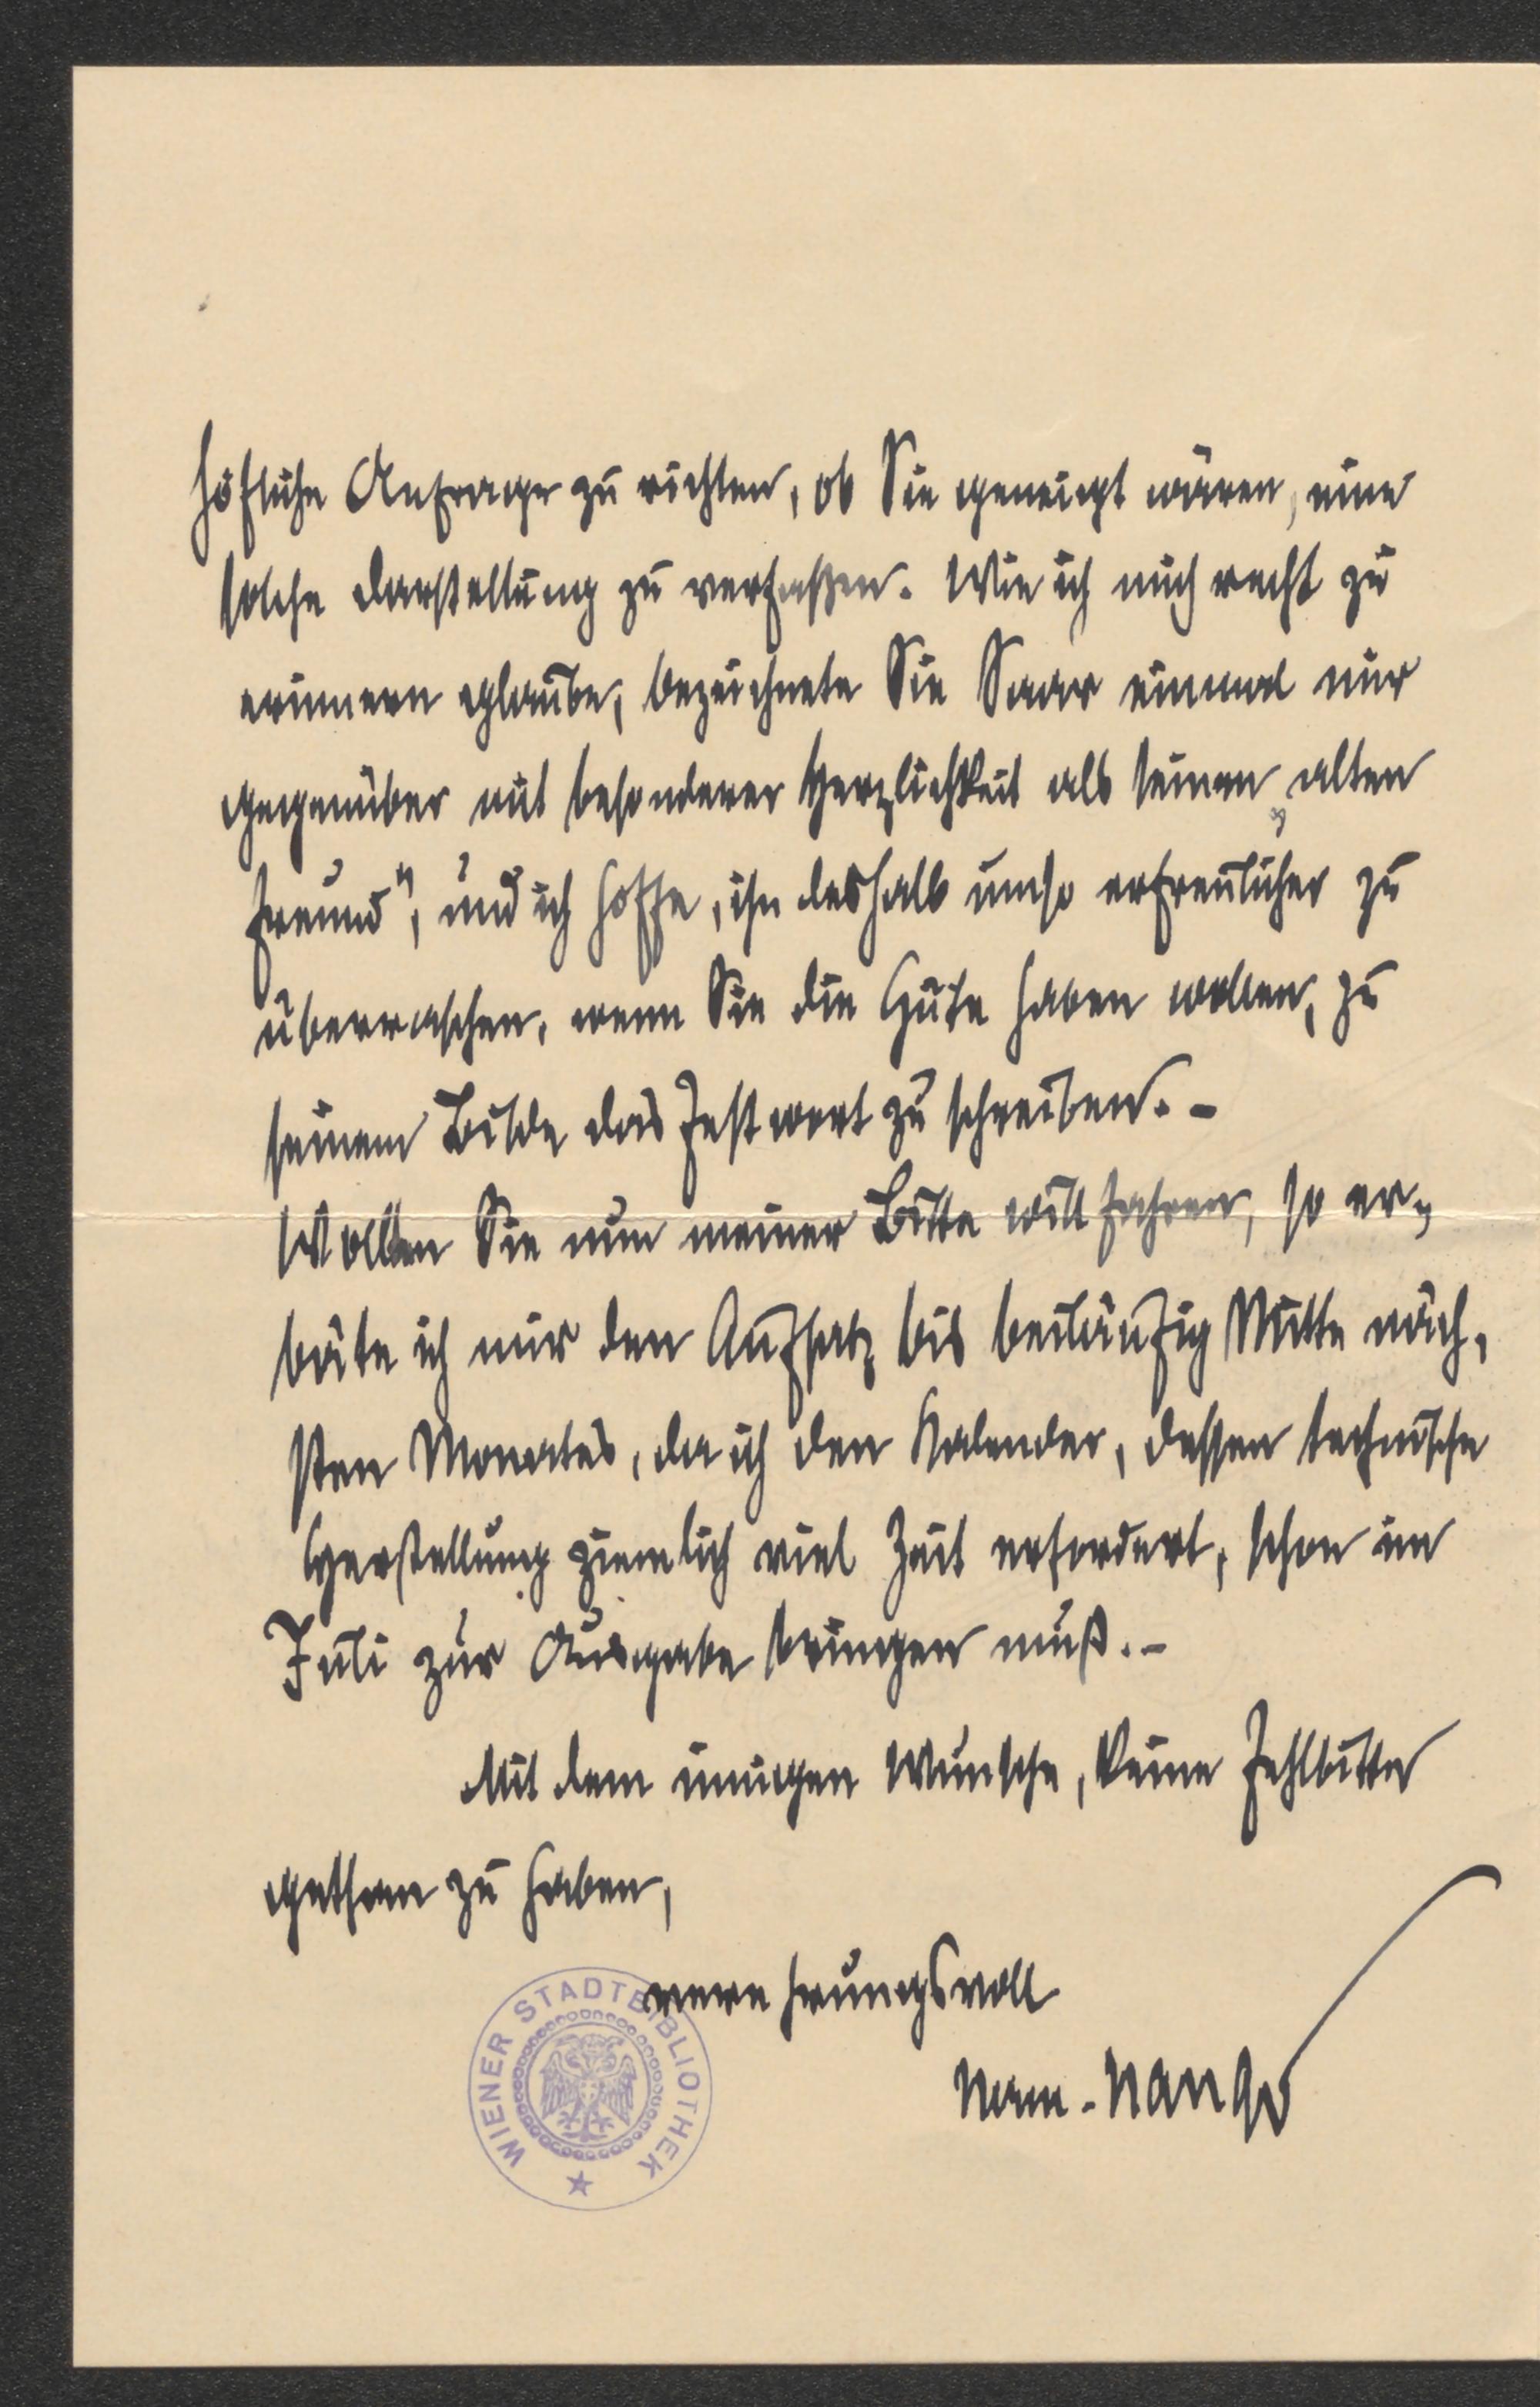 höfliche Anfrage zu richten, ob Sie geneigt wären, eine
solche Darstellung zu verfaßen. Wie ich mich recht zu
erinnern glaube, bezeichnete Sie Saar einmal mir
gegenüber mit besonderer Herzlichkeit als seinen „alten
Freund“, und ich hoffe, ihn deshalb umso erfreulicher zu
überraschen, wenn Sie die Güte haben wollen, zu
seinem Bilde das Festwort zu schreiben. –
Wollen Sie nun meiner Bitte willfahren, so er-
bäte ich mir den Aufsatz bis beiläufig Mitte näch-
sten Monates, da ich den Kalender, dessen technische
Herstellung ziemlich viel Zeit erfordert, schon im
Juli zur Ausgabe bringen muß. –
Mit dem innigen Wunsche, keine Fehlbitte
gethan zu haben,
verehrungsvoll
WIENER STADTBIBLIOTHEK